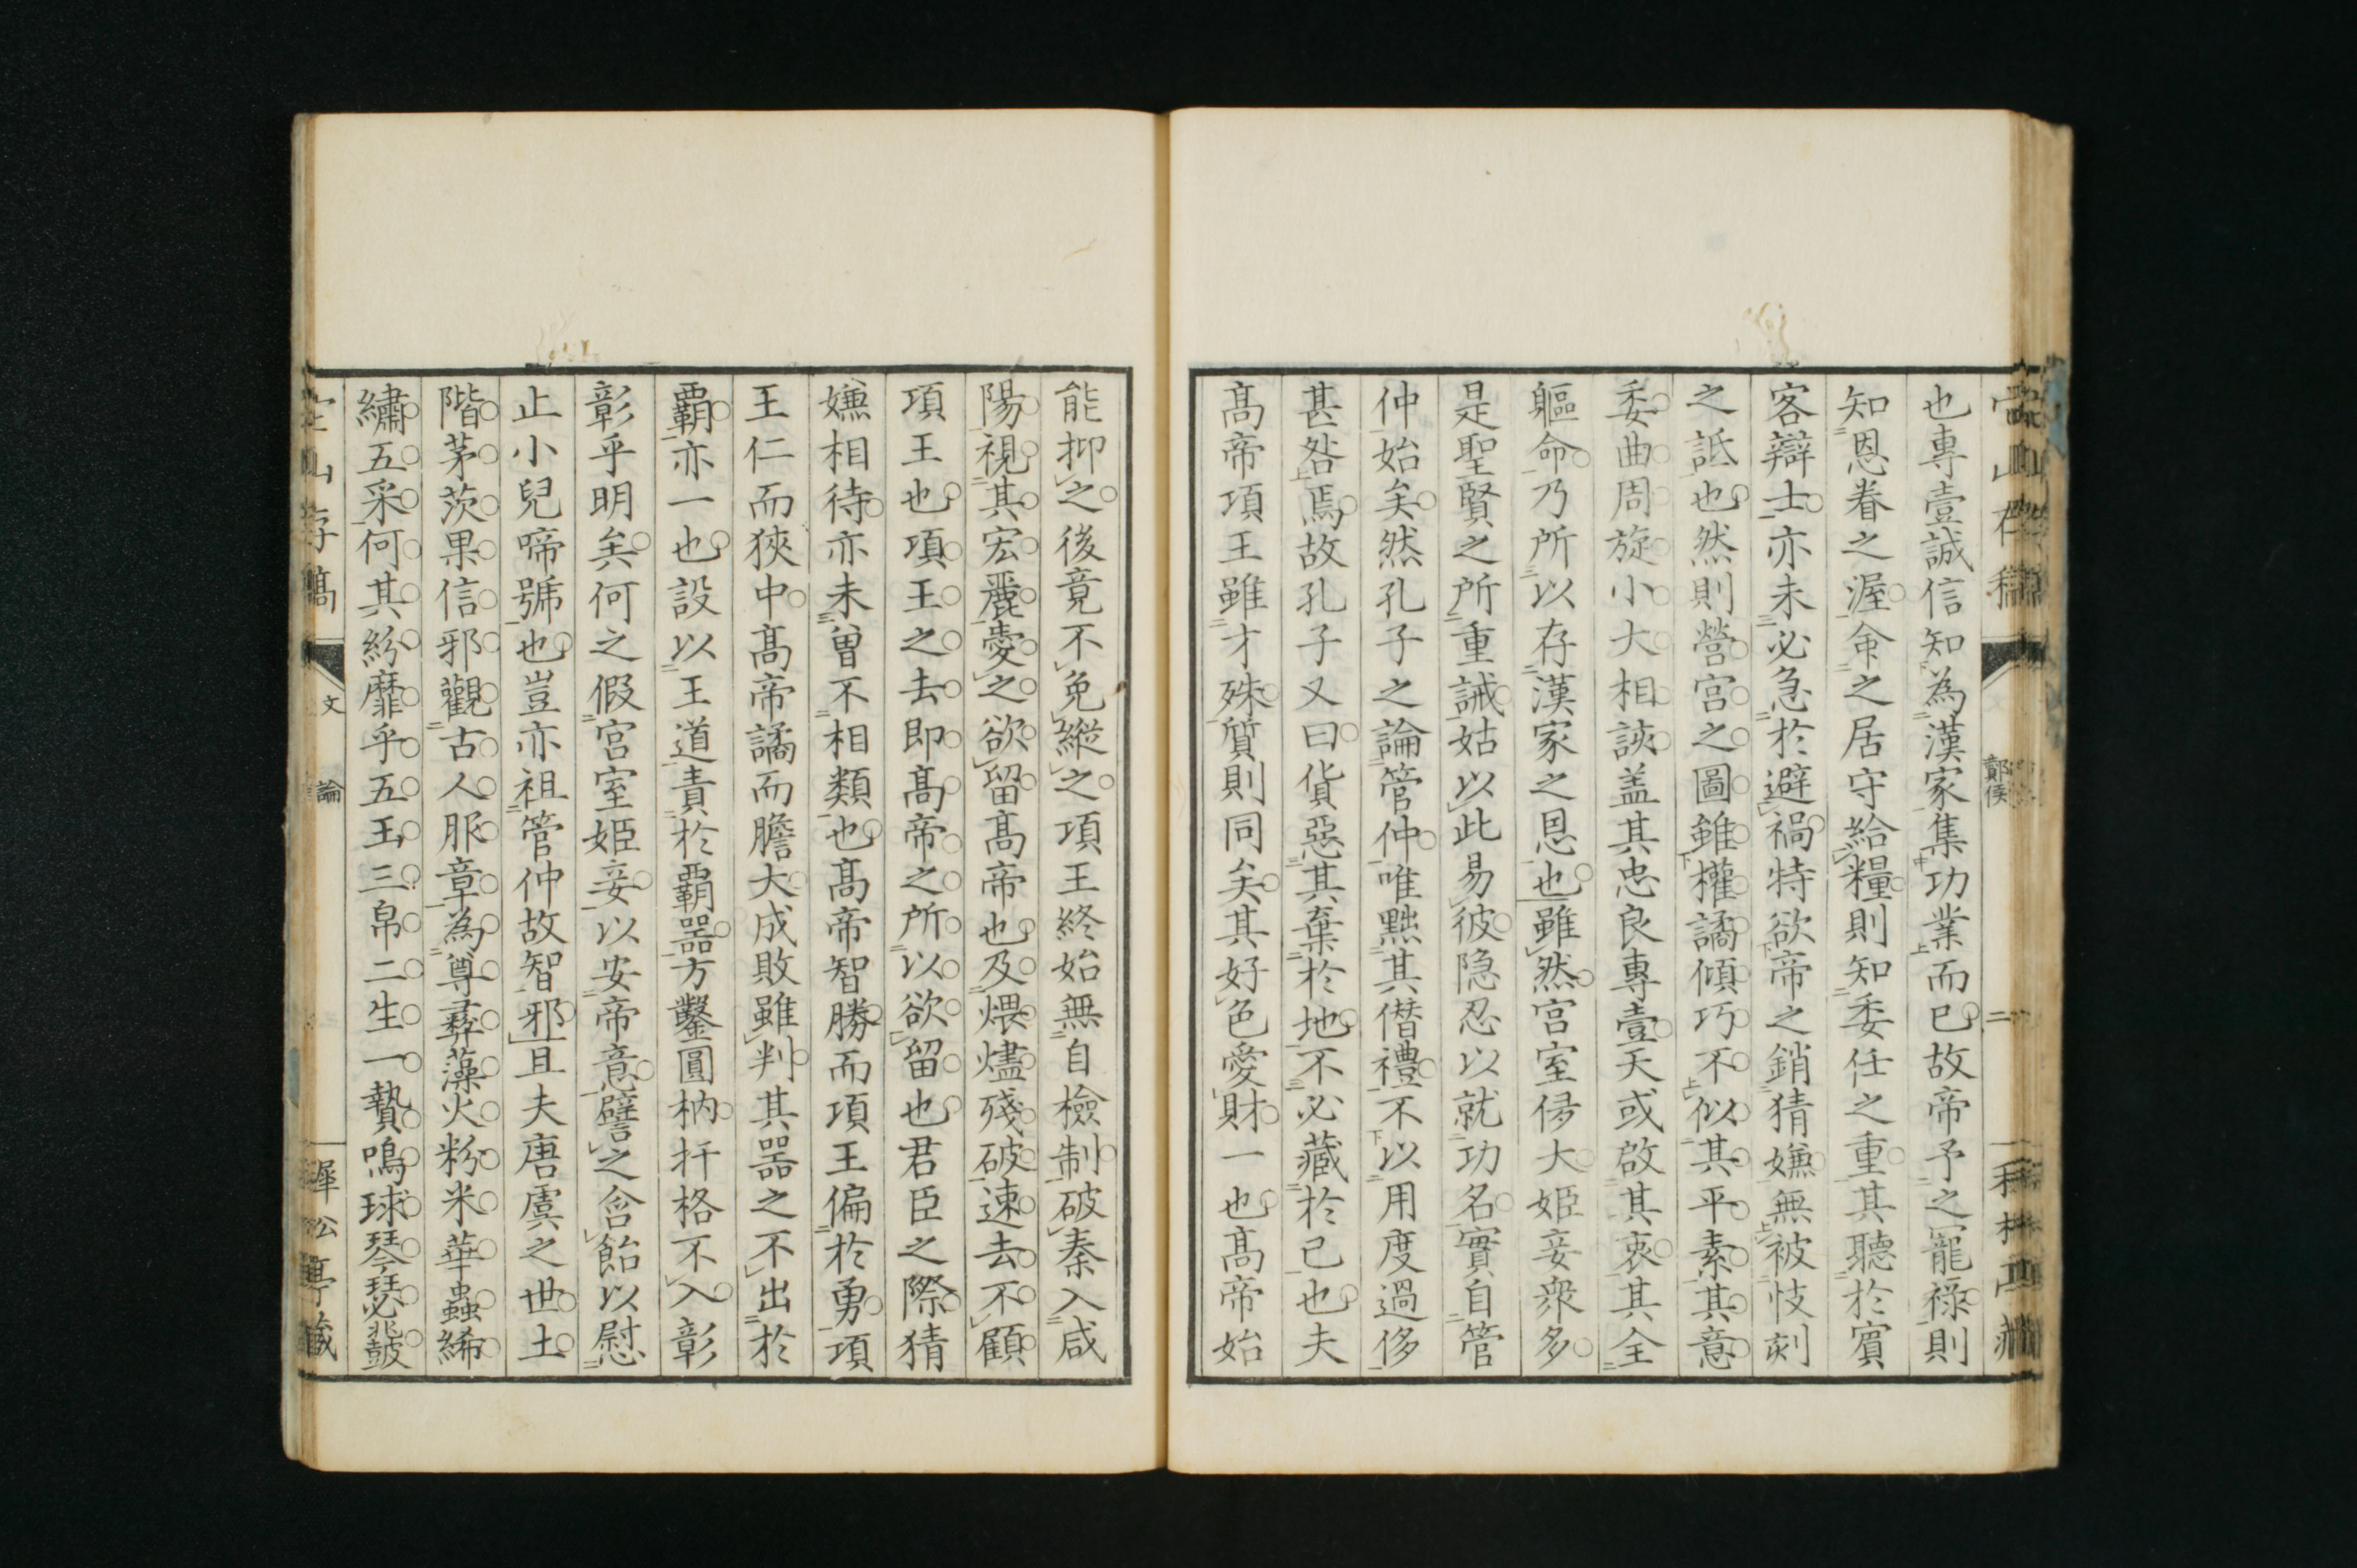 也專壹誠信知為漢家集功業而已故帝予之寵祿則
知恩眷之渥命之居守給糧則知委任之重其聽於賓
客辯士亦未必急於避禍特欲帝之銷猜嫌無被忮刻
之詆也然則營宮之圖雖權譎傾巧不似其平素其意
委曲周旋小大相該盖其忠良專壹天或啟其衷其全
軀命乃所以存漢家之恩也雖然宮室侈大姬妾衆多
是聖賢之所重誡姑以此易彼隐忍以就功名實自管
仲始矣然孔子之論管仲唯黜其僭禮不以用度過侈
甚咎焉故孔子又曰貨惡其棄於地不必藏於己也夫
髙帝項王雖才殊質則同矣其好色愛財一也髙帝始
能抑之後竟不免縱之項王終始無自檢制破秦入咸
陽視其宏麗憂之欲留髙帝也及煨燼殘破速去不顧
項王也項王之去即髙帝之所以欲留也君臣之際猜
嫌相待亦未曽不相類也髙帝智勝而項王偏於勇項
王仁而狹中髙帝譎而膽大成敗雖判其噐之不出於
覇亦一也設以王道責於覇噐方鑿圓枘扞格不入彰
彰乎明矣何之假宮室姬妾以安帝意譬之含飴以慰
止小兒啼號也豈亦祖管仲故智邪且夫唐虞之世土
階茅茨果信邪觀古人服章為尊彛藻火粉米華蟲絺
繡五采何其紛靡乎五玉三帛二生一贄鳴球琴瑟鼗
山存稿
文
論
酇侯
二